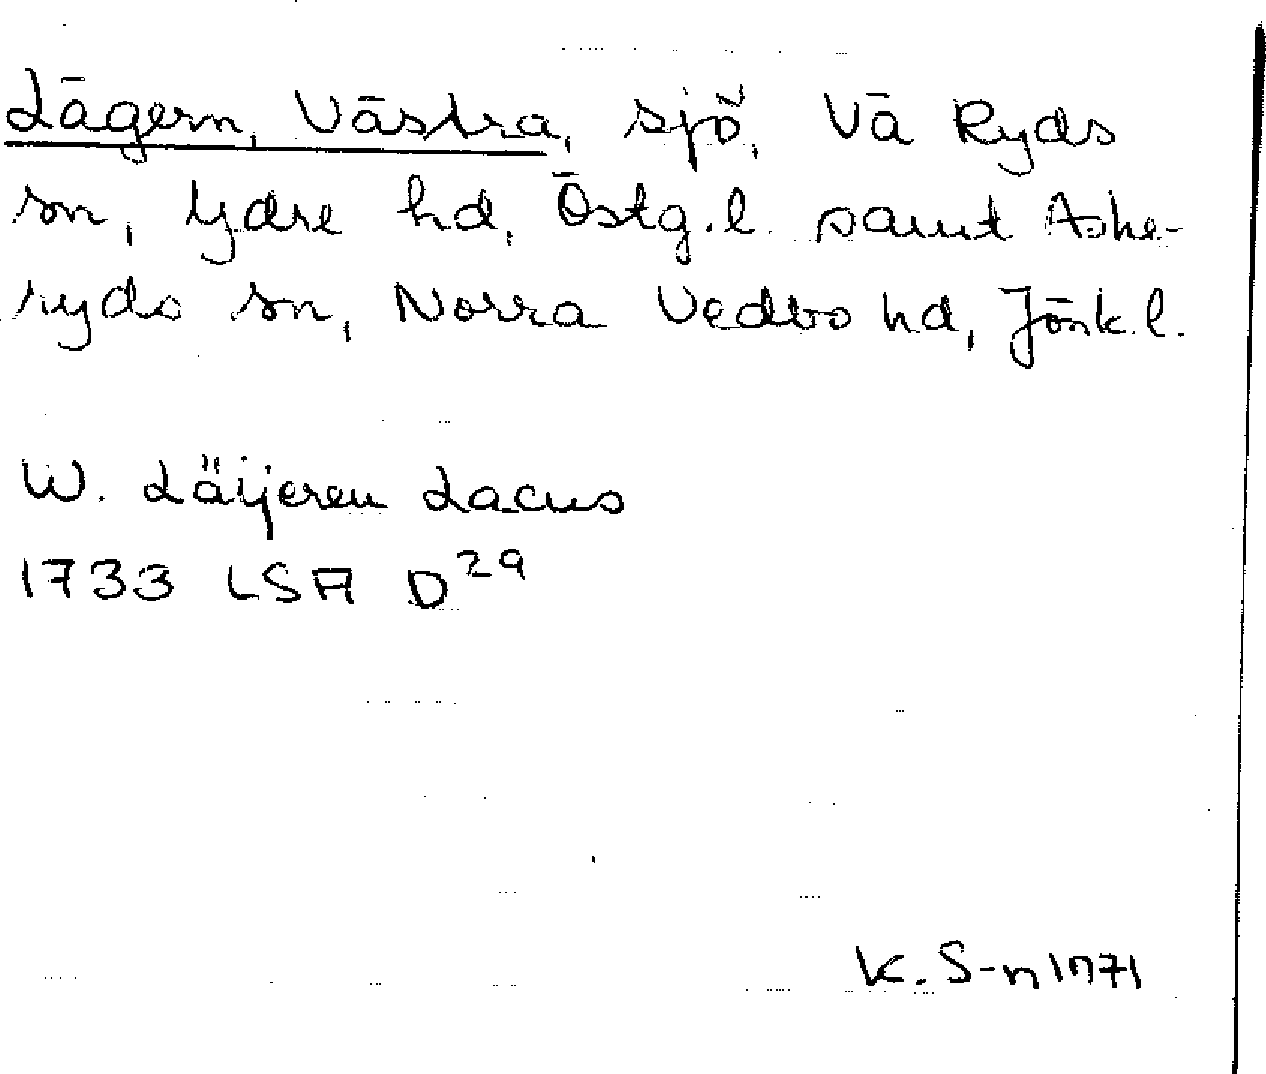 Lägern, Västra, sjö, Vä Ryds
sn, Ydre hd, Östg.l. samt Aske-
ryds sn, Norra Vedbo hd, Jönk.l.
W. Läijeren Lacus
1733 LSA D29
K. S-n 1971